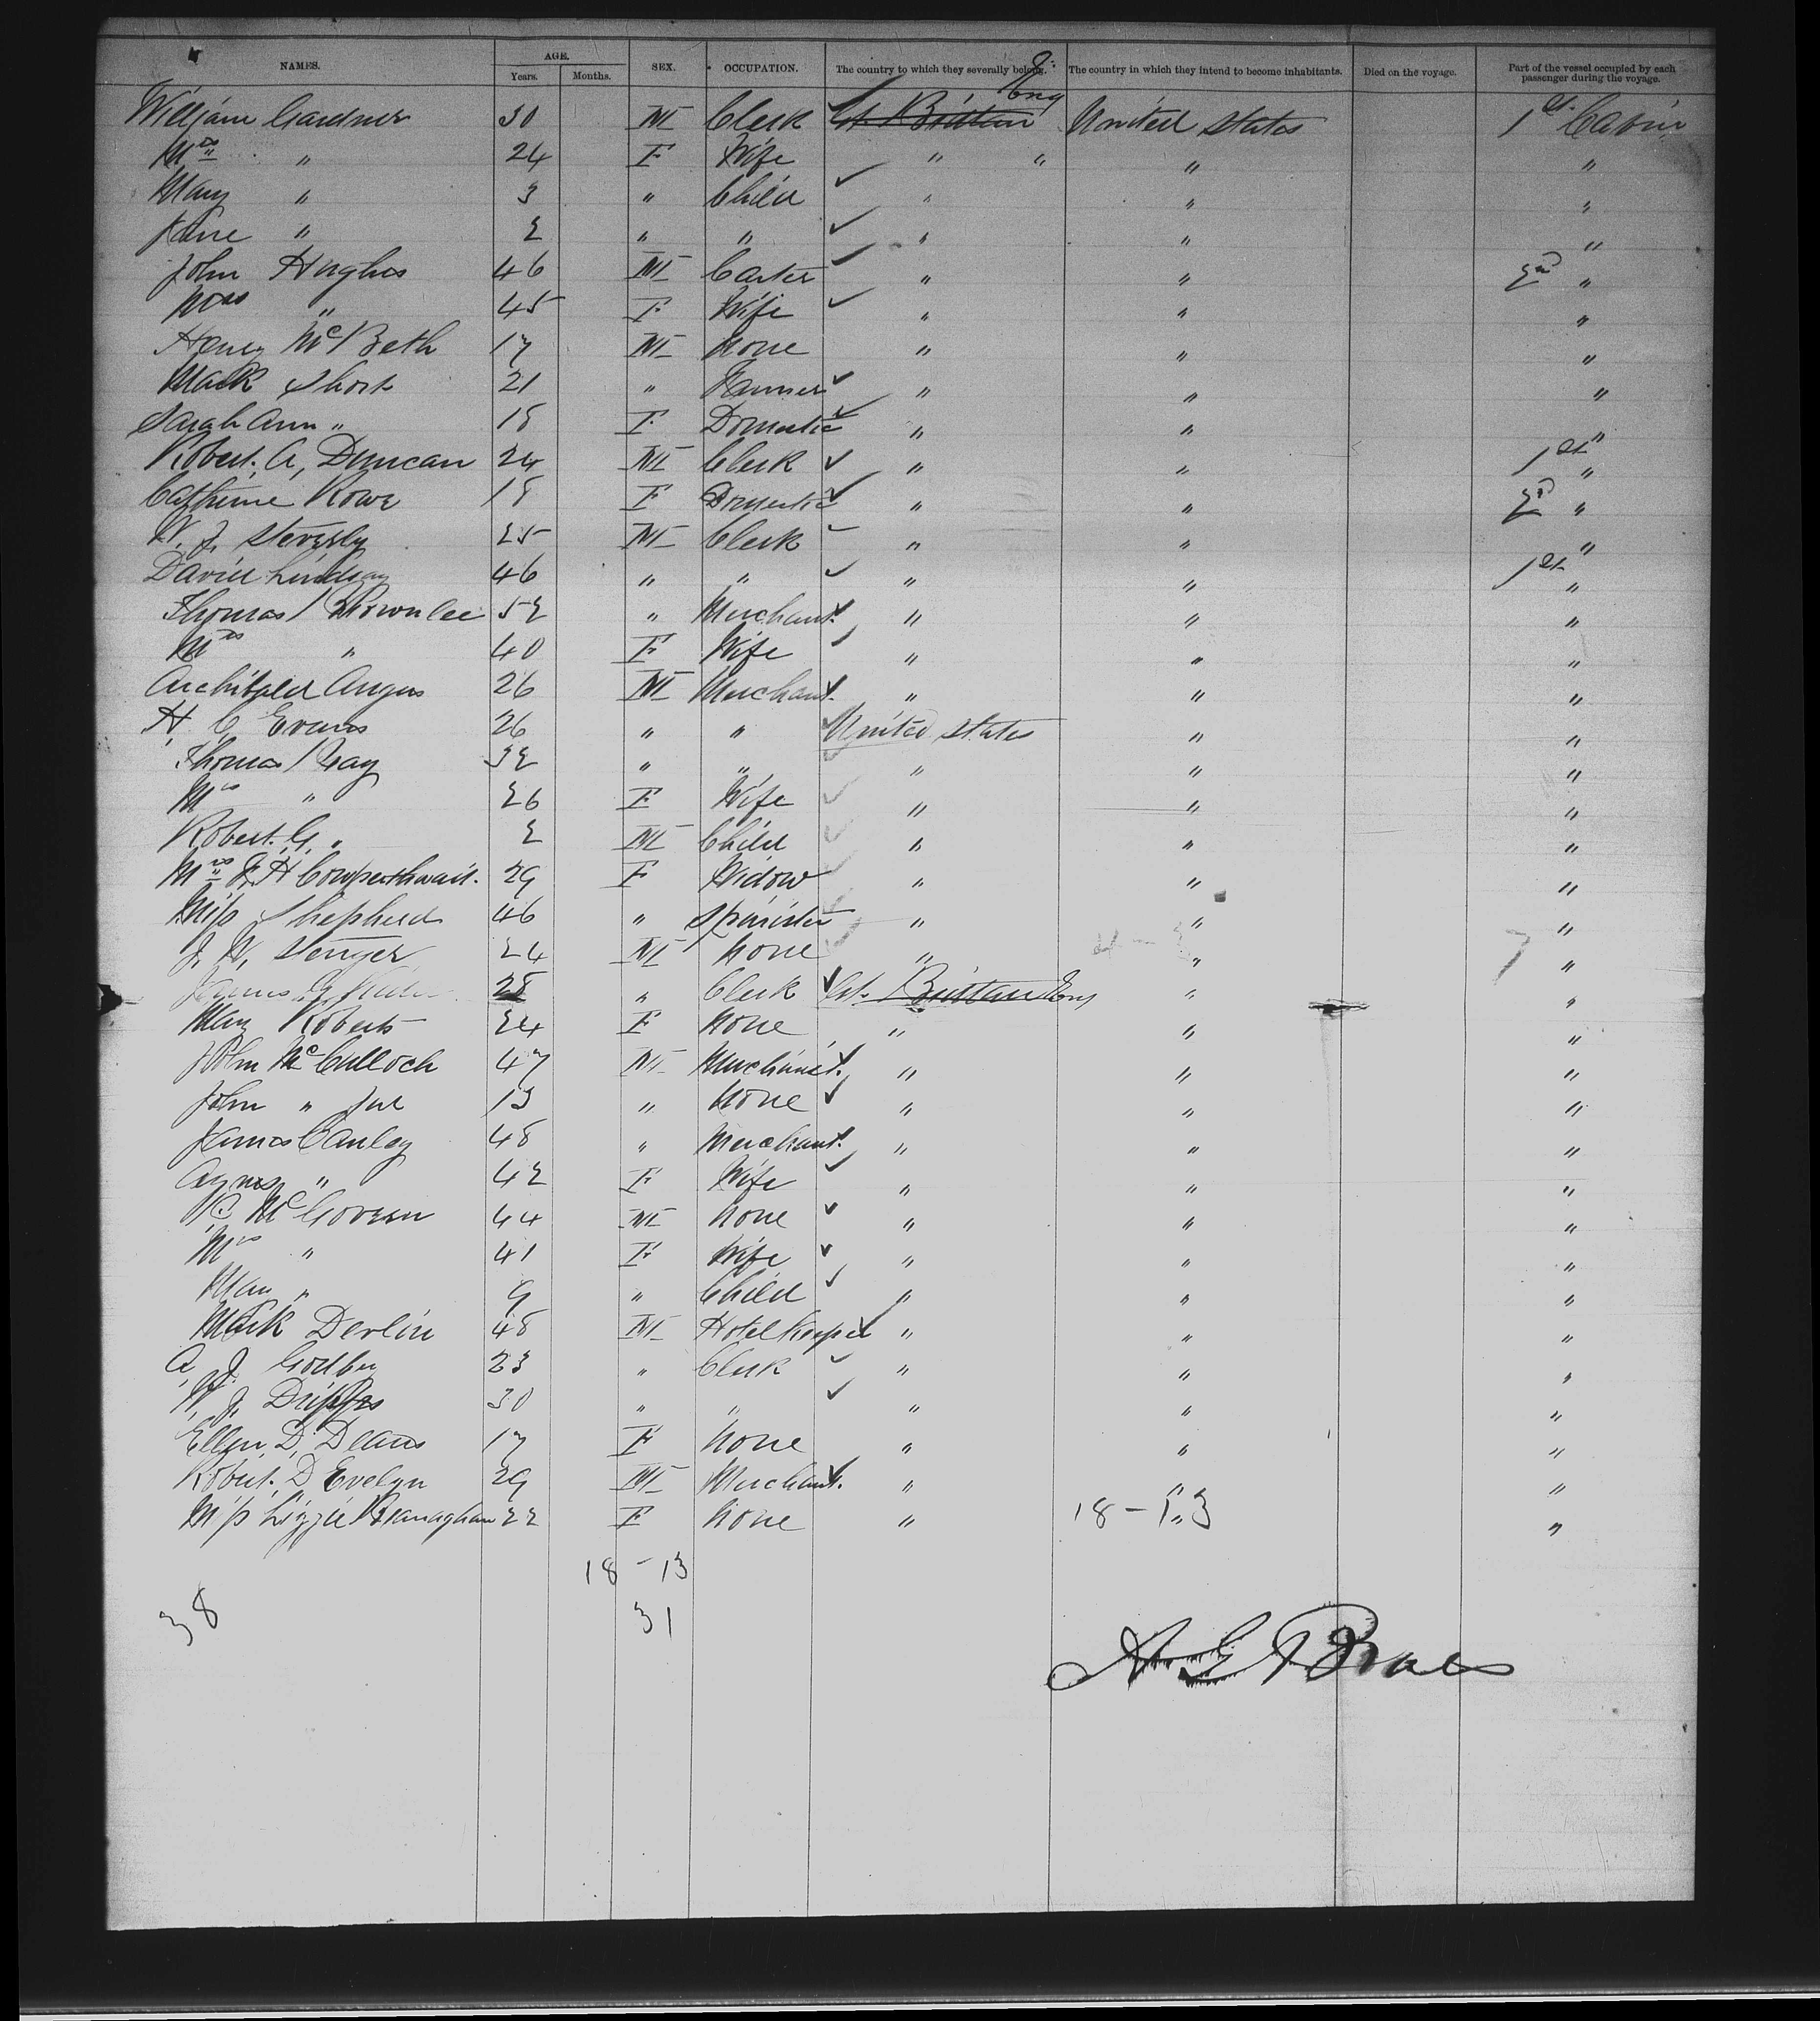 NAMES. AGE. SEX. OCCUPATION. The country to which they severally belong. The country in which they intend to become inhabitants. Died on the voyage. Part of the vessel occupied by each passenger during the voyage.
Years. Months.
Eng
William Gardner 30 M Clerk Gt. Brittain United States 1st Cabin
Mrs " 24 F Wife " " " "
Mary " 3 " Child " " "
Jane " 2 " " " " "
John Hughes 46 M Carter " " 2nd "
Mrs " 45 F Wife " " "
Henry McBeth 17 M None " " "
Mark Short 21 " Farmer " " "
Sarah Ann " 18 F Domestic " " "
Robert. A, Duncan 24 M Clerk " " 1st "
Catherine Rowe 18 F Domestic " " 2d "
W. J. 25 M Clerk " " "
David Lindsay 46 " " " " 1st "
Thomas Brownlee 52 " Merchant. " " "
Mrs " 40 F Wife " " "
Archibald Angus 26 M Merchant. " " "
H. C. Evans 26 " " United States " "
Thomas Gay 32 " " " " "
Mrs " 26 F Wife " " "
Robert. G. " 2 M Child " " "
Mrs J. H Cowperthwait. 29 F Widow " " "
Miss Shepherd 46 " Spinister " " "
J. W. 24 M None " " "
James G. 28 " Clerk Gt. Brittain Eng " "
Mary Roberts 24 F None " " "
John McCulloch 47 M Merchant. " " "
John " Jnr 13 " None " " "
James Cauley 48 " Merchant. " " "
Agnes " 42 F Wife " " "
McGovern 44 M None " " "
Mrs " 41 F Wife " " "
Mary " 9 " Child " " "
Mark Devlin 48 M Hotel Keeper " " "
A. J. Godby 23 " Clerk " " "
W. J. Dripps 30 " " " " "
Ellen. D. Deans 17 F None " " "
Robert. D Evelyn 29 M Merchant. " " "
Miss Lizzie Branagham 22 F None " 18 - 13 "
18 - 13
38 31